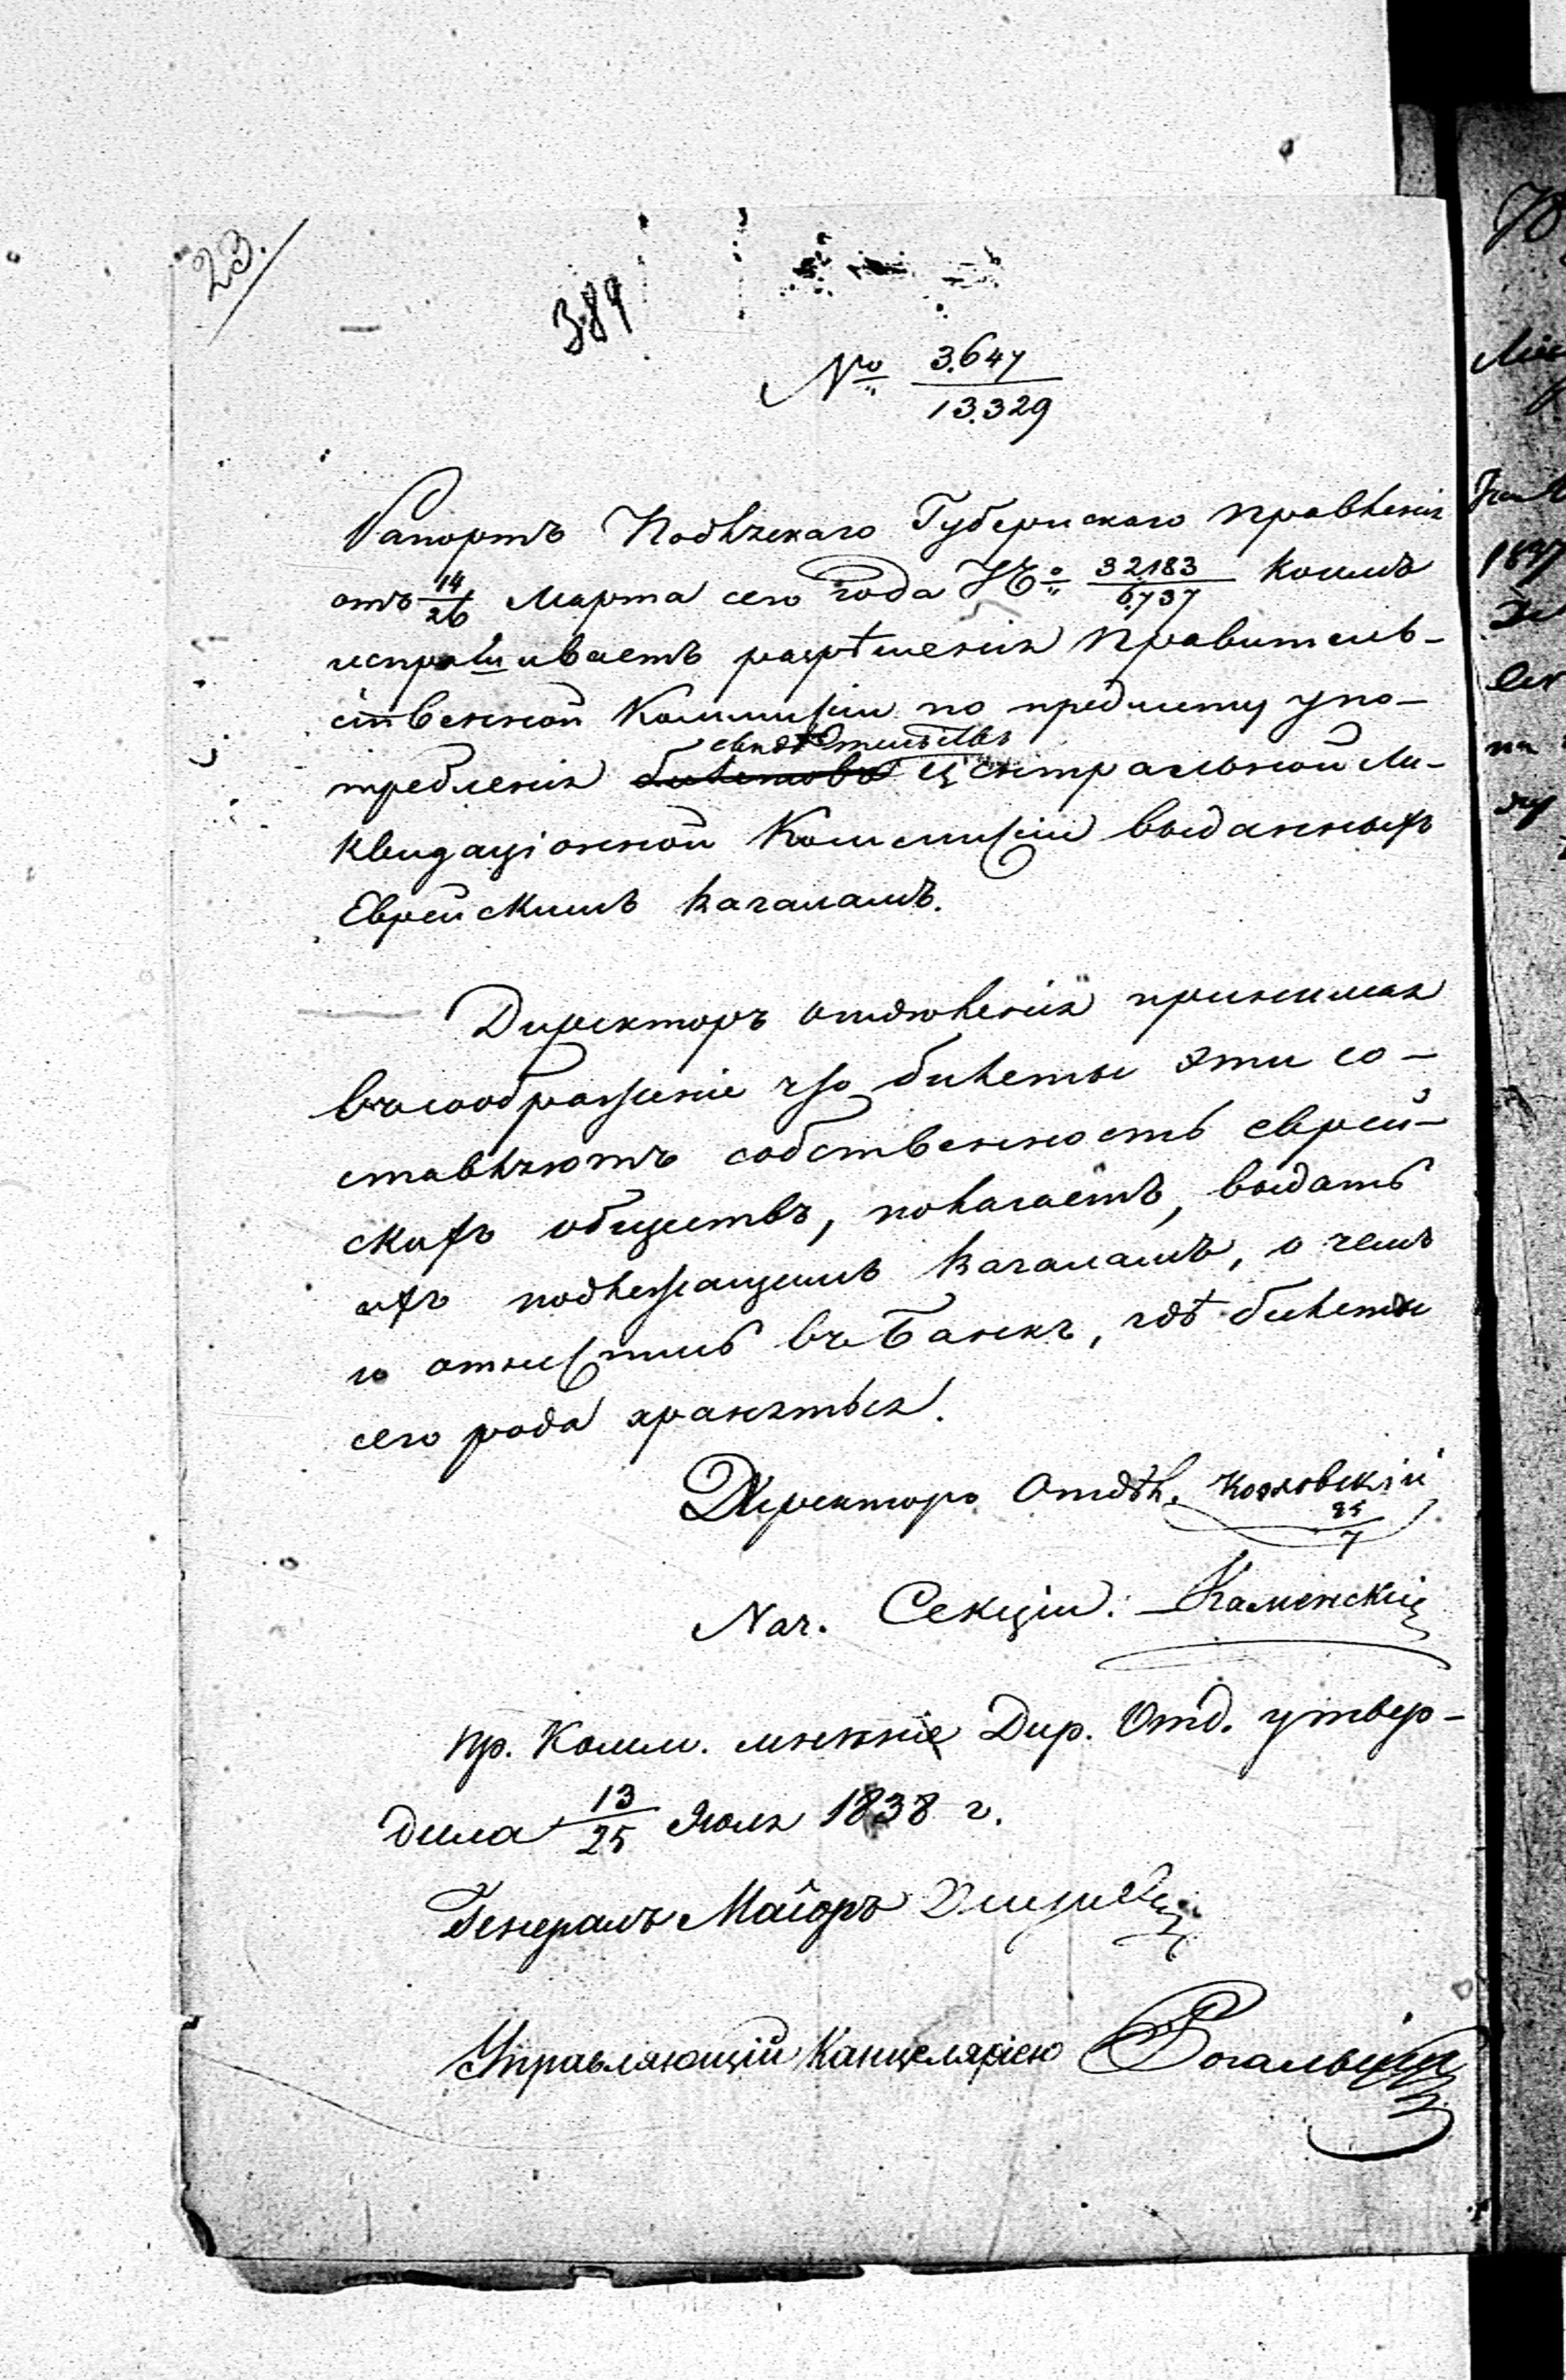 23.
389
№ 3.647
13.329
Рапортъ Подляскаго Губернскаго Правленія
отъ 14/26 Марта сего года № 32183/6.737 коимъ
испрашиваетъ разрѣшенія Правитель-
ственной Коммиссіи по предмету упо-
свидѣтельствъ
требленія билетовъ Центральной Ли-
квидаціонной Коммиссіи выданныхъ
Еврейскимъ кагаламъ.
Директоръ отдѣленія принимая
въ соображеніе что билеты эти со-
ставляютъ собственность еврей-
скихъ обществъ, полагаетъ, выдать
ихъ подлежащимъ кагаламъ, о чемъ
и отнестись въ Банкъ, гдѣ билеты
сего рода храняться.
Директоръ Отдѣл. Козловскій
25/7
Нач. Секціи: Каменскій
Пр. Комм. мненніе Дир. Отд. утвер-
дила 13/25 Іюля 1838 г.
Генералъ Маіоръ
Управляющій Канцеляріею